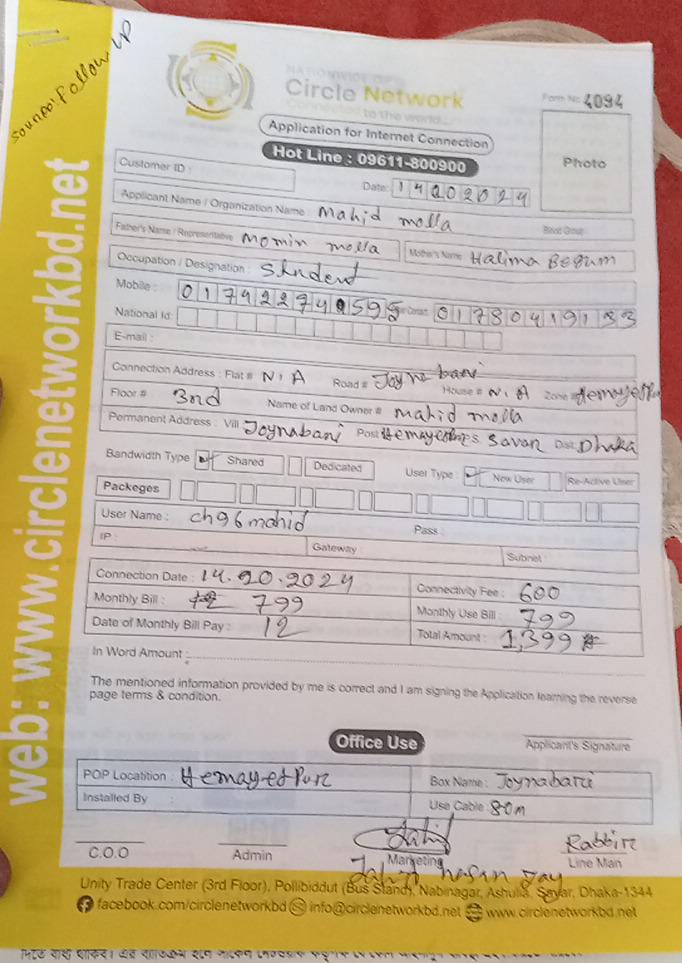 Source: Follow UP
NATIONWIDE ISP
Circle Network
Connected to the world...
Form No: 4094
Application for Internet Connection
Hot Line : 09611-800900
Photo
Customer ID :
Date: 14 2024
Applicant Name / Organization Name : Mahid molla
Blood Group:
Father's Name / Representative Momin molla Mother's Name Halima Begum
Occupation / Designation : Student
Mobile : 01780419133
National Id:
E-mail :
Connection Address : Flat # N, A Road # House # N, A Zone #
Floor # 3nd Name of Land Owner # Mahid molla
Permanent Address : Vill Joynabari Post P.S. Savar Dist. Dhaka
Bandwidth Type Shared Dedicated User Type : New User Re-Active User
Packeges
User Name : ch96mahid Pass :
IP : Gateway Subnet
Connection Date : 14.20.2024 Connectivity Fee : 600
Monthly Bill : 799 Monthly Use Bill : 799
Date of Monthly Bill Pay : 12 Total Amount : 1,399
In Word Amount :
The mentioned information provided by me is correct and I am signing the Application learning the reverse
page terms & condition.
Office Use
Applicant's Signature
POP Locatition : Hemayetpur Box Name : Joynabari
Installed By : Use Cable : 80m
Rabbir
C.O.O Admin Marketing Line Man
Unity Trade Center (3rd Floor), Pollibiddut (Bus Stand), Nabinagar, Ashulia, Savar, Dhaka-1344
facebook.com/circlenetworkbd info@circlenetworkbd.net www.circlenetworkbd.net
web: www.circlenetworkbd.net